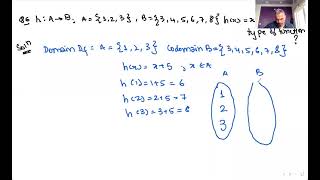 h: A→B, A = {1,2,3}, B = {3,4,5,6,7,8} h(x) = x
type of function ?
Soln
Domain Df = A = {1,2,3} Codomain B = {3,4,5,6,7,8}
h(x) = x+5 , x ∈ A
h(1) = 1+5 = 6
h(2) = 2+5 = 7
h(3) = 3+5 = 8
A B
1
2
3